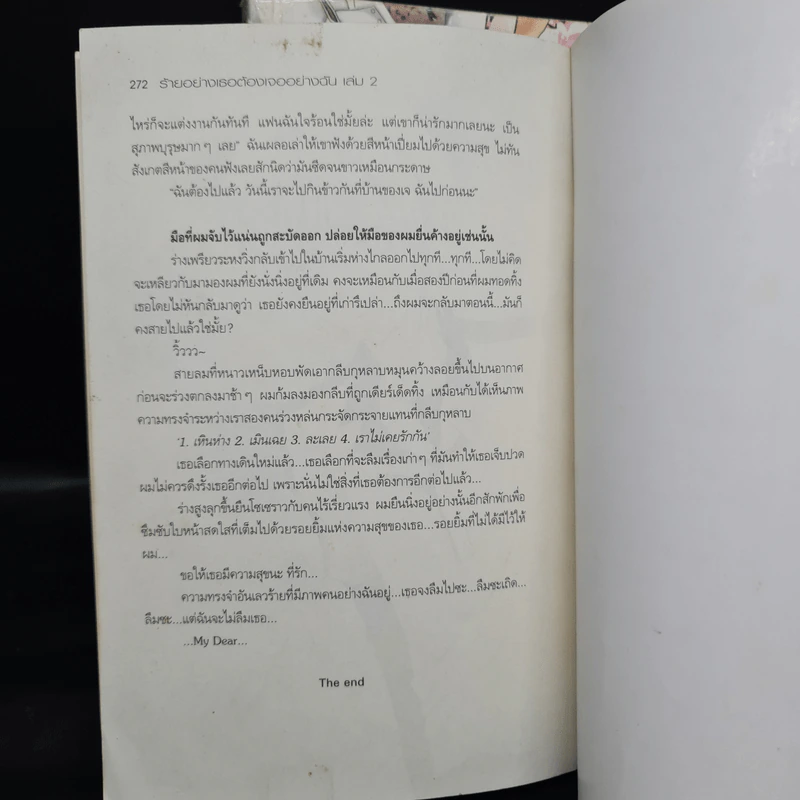 272 ร้ายอย่างเธอต้องเจออย่างฉัน เล่ม 2
ไหร่ก็จะแต่งงานกันทันที แฟนฉันใจร้อนใช่มั้ยล่ะ แต่เขาก็น่ารักมากเลยนะ เป็น
สุภาพบุรุษมากๆ เลย” ฉันเผลอเล่าให้เขาฟังด้วยสีหน้าเปี่ยมไปด้วยความสุข ไม่ทัน
สังเกตสีหน้าของคนฟังเลยสักนิดว่ามันซีดจนขาวเหมือนกระดาษ
“ฉันต้องไปแล้ว วันนี้เราจะไปกินข้าวกันที่บ้านของเจ ฉันไปก่อนนะ”
มือที่ผมจับไว้แน่นถูกสะบัดออก ปล่อยให้มือของผมยื่นค้างอยู่เช่นนั้น
ร่างเพรียวระหงวิ่งกลับเข้าไปในบ้านเริ่มห่างไกลออกไปทุกที...ทุกที...โดยไม่คิด
จะเหลียวกลับมามองผมที่ยังนั่งนิ่งอยู่ที่เดิม คงจะเหมือนกับเมื่อสองปีก่อนที่ผมทอดทิ้ง
เธอโดยไม่หันกลับมาดูว่า เธอยังคงยืนอยู่ที่เก่ารึเปล่า...ถึงผมจะกลับมาตอนนี้...มันก็
คงสายไปแล้วใช่มั้ย?
วิ้ววว~
สายลมที่หนาวเหน็บหอบพัดเอากลีบกุหลาบหมุนคว้างลอยขึ้นไปบนอากาศ
ก่อนจะร่วงตกลงมาช้าๆ ผมก้มลงมองกลีบที่ถูกเดียร์เด็ดทิ้ง เหมือนกับได้เห็นภาพ
ความทรงจำระหว่างเราสองคนร่วงหล่นกระจัดกระจายแทนที่กลีบกุหลาบ
‘1. เหินห่าง 2. เมินเฉย 3. ละเลย 4. เราไม่เคยรักกัน’
เธอเลือกทางเดินใหม่แล้ว...เธอเลือกที่จะลืมเรื่องเก่าๆ ที่มันทำให้เธอเจ็บปวด
ผมไม่ควรดึงรั้งเธออีกต่อไป เพราะนั่นไม่ใช่สิ่งที่เธอต้องการอีกต่อไปแล้ว...
ร่างสูงลุกขึ้นยืนโซเซราวกับคนไร้เรี่ยวแรง ผมยืนนิ่งอยู่อย่างนั้นอีกสักพักเพื่อ
ซึมซับใบหน้าสดใสที่เต็มไปด้วยรอยยิ้มแห่งความสุขของเธอ...รอยยิ้มที่ไม่ได้มีไว้ให้
ผม...
ขอให้เธอมีความสุขนะ ที่รัก...
ความทรงจำอันเลวร้ายที่มีภาพคนอย่างฉันอยู่...เธอจงลืมไปซะ...ลืมซะเถิด...
ลืมซะ...แต่ฉันจะไม่ลืมเธอ...
...My Dear...
The end